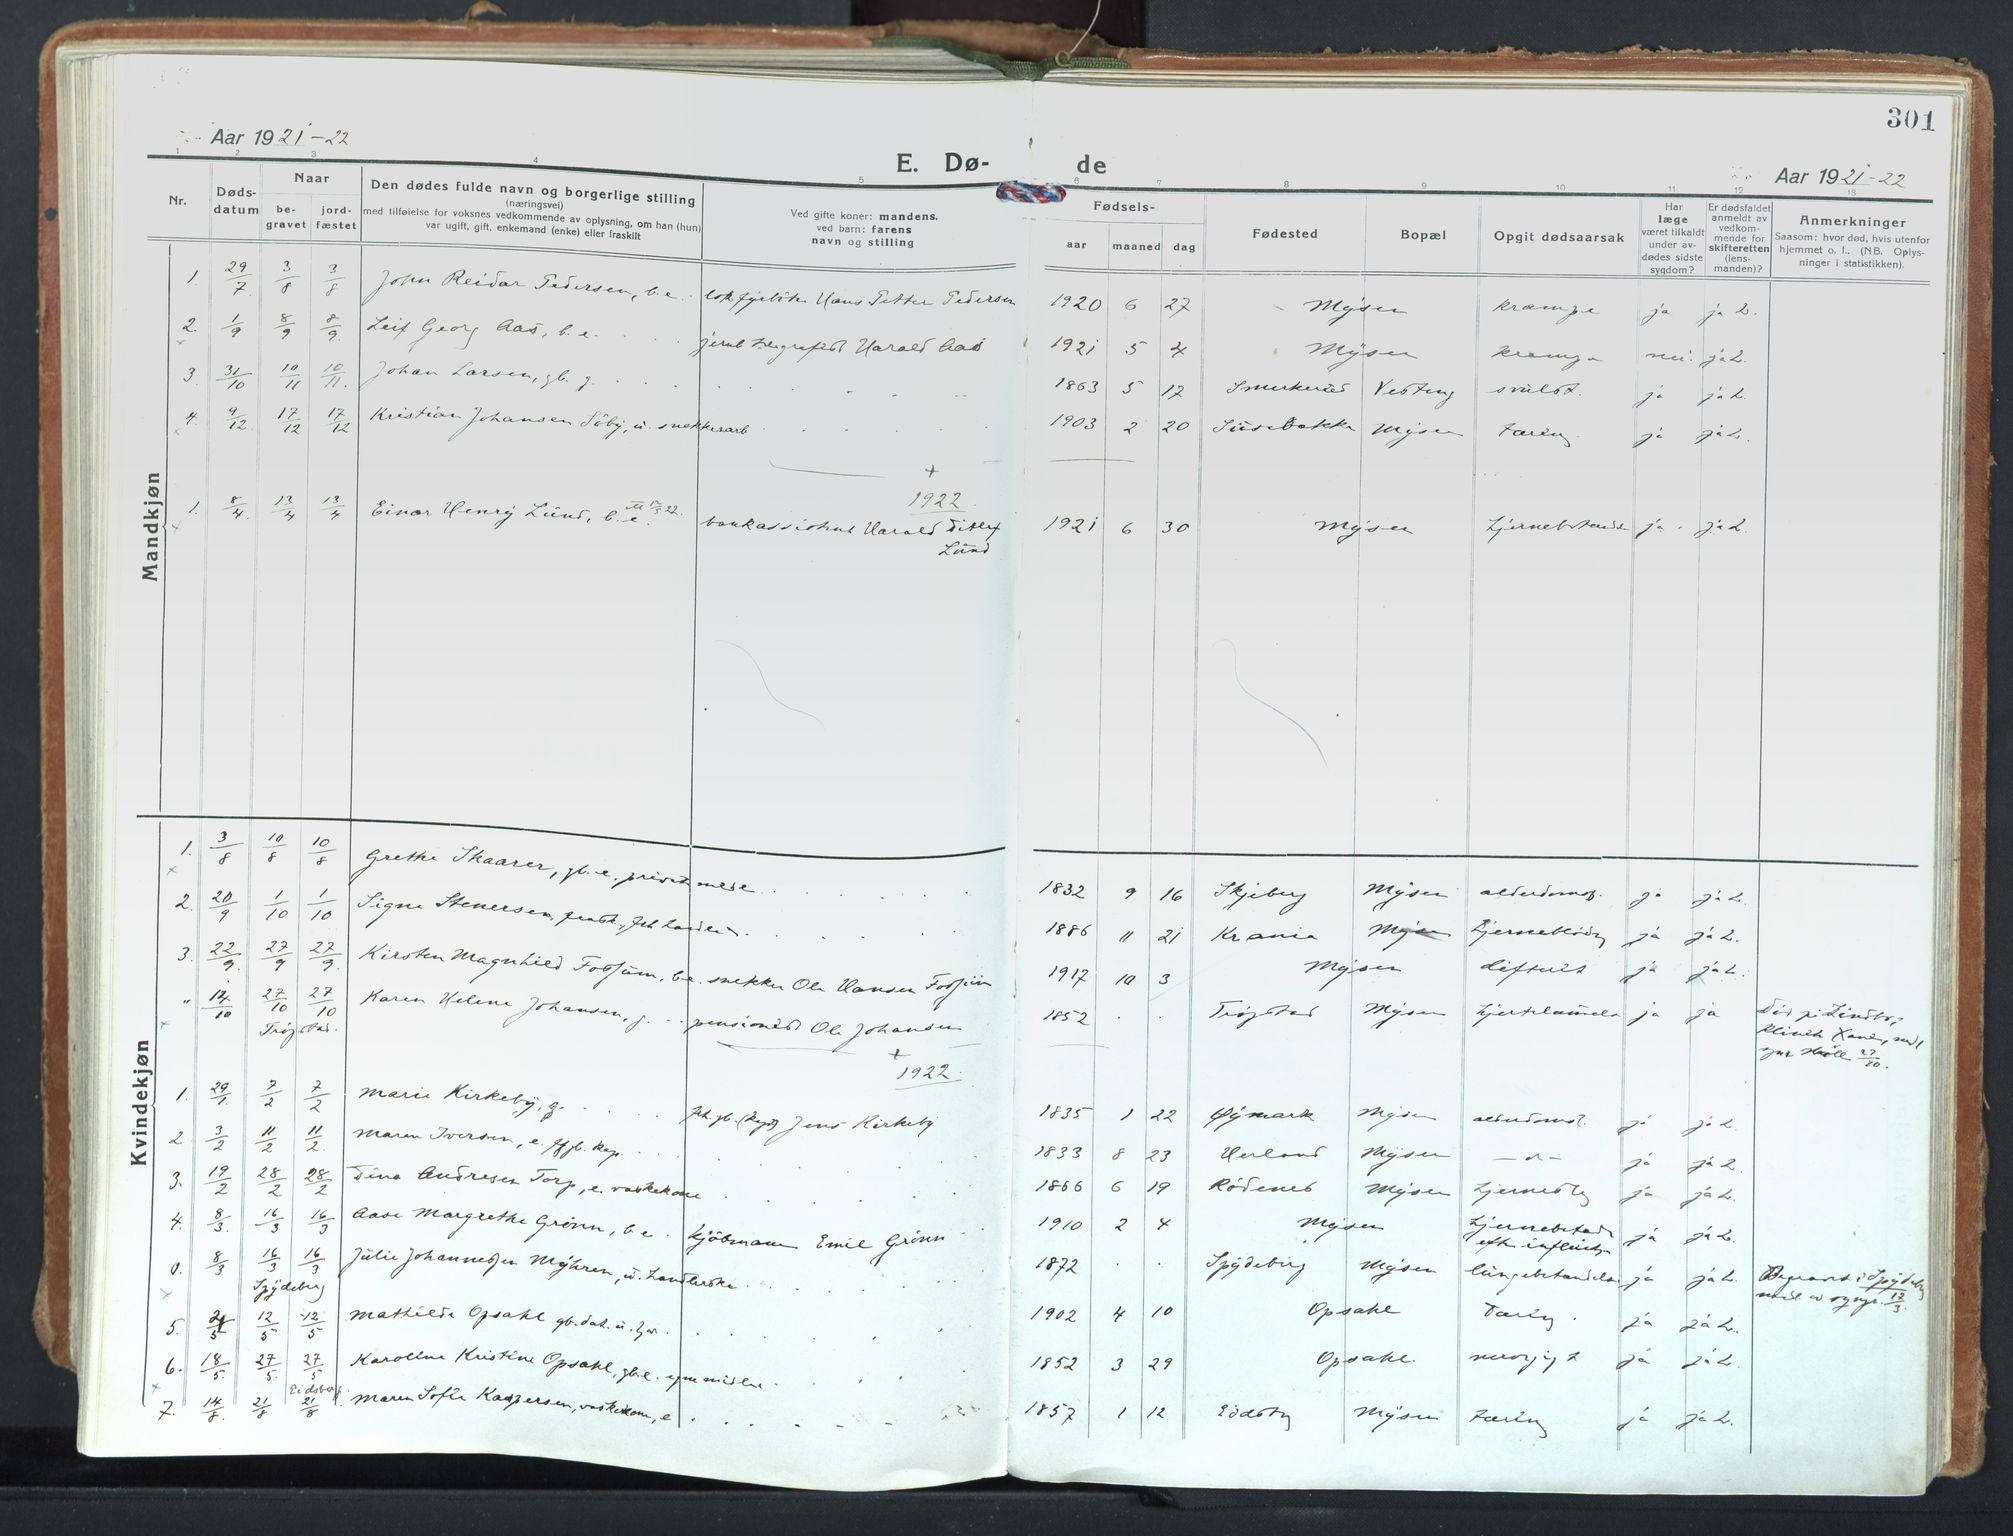 301
Aar 1921-22
E. Dø-
de
Aar 1921-22
1 2 3 4 5 6 7 8 9 10 11 12 13
Nr.
Døds-
datum
Naar
be-
gravet
jord-
fæstet
Den dødes fulde navn og borgerlige stilling
(næringsvei)
med tilføielse for voksnes vedkommende av oplysning, om han (hun)
var ugift, gift, enkemand (enke) eller fraskilt
Ved gifte koner: mandens.
ved barn: farens
navn og stilling
Fødsels-
aar maaned dag
Fødested
Bopæl
Opgit dødsaarsak
Har
læge
været tilkaldt
under av-
dødes sidste
sygdom?
Er dødsfaldet
anmeldt av
vedkom-
mende for
skifteretten
(lens-
manden)?
Anmerkninger
Saasom: hvor død, hvis utenfor
hjemmet o. l.. (NB. Oplys-
ninger i statistikken).
Mandkjøn
1. 29/7 3/8 3/8 John Reidar Pedersen, b. e. Hans Petter Pedersen 1920 6 27 Mysen krampe ja ja L.
2. 1/9 8/9 8/9. Leif Georg Aas, b. e. Harald Aas 1921 5 4 Mysen krampe nei. ja L.
3. 31/10 10/11 10/11. Johan Larsen, gb. g. 1863 5 17 svulst. ja ja L.
4. 9/12. 17/12 17/12 Kristian Johansen Söby, u. snekkerarb 1903 2 20 Mysen tæring. ja ja L.
+
1922
1. 8/4. 13/4 13/4 Einar Henry Lund, b. e. bankassistent Harald Ditlef 1921 6 30 Mysen ja ja L.
Lund
Kvindekjøn
1. 3/8 10/8 10/8 Grethe Skaarer, gb. e. 1832 9 16 Skjeberg Mysen alderdomss. ja ja L.
2. 20/9 1/10 1/10 Signe Stenersen 1886 11 21 Krania Mysen ja ja L.
3. 22/9. 27/9 27/9. Kirsten Magnhild Fossum, b. e. snekker Ole Hansen Fossum 1917 10 3 Mysen difterit ja ja L.
" 14/10 27/10 27/10 Karen Helene Johansen, g. pensionist Ole Johansen 1852 Trøgstad Mysen ja ja
Trøgstad.
+
1922
1. 29/1. 7/2 7/2 Marie Kirkeby, g. Jens Kirkeby 1835 1 22 Øymark Mysen ja ja L.
2 3/2 11/2 11/2. Maren Iversen, e. 1833 8 23 Mysen ja ja L.
3. 19/2 28/2 28/2 Dina Andresen Torp, e. vaskekone 1866 6 19 Rödenes Mysen ja ja L.
4. 8/3. 16/3 16/3 Aase Margrethe Grönn, b. e. kjöbmann Emil Grönn 1910 2 4 Mysen ja ja L.
0. 8/3 16/3 16/3 Julie Johannessen Myhren, u. 1872 Spydeberg Mysen lungebetendelse ja ja L. Begravet i Spydeberg
Spydeberg
5. 12/5 12/5 Mathilde Opsahl gb. dat. u. 1902 4 10 Opsahl Tæring. ja ja L.
6. 18/5. 27/5. 27/5 Karoline Kristine Opsahl, gb. e. 1852 3 29 Opsahl. ja ja L.
Eidsberg
7. 14/8. 21/8 21/8. Maren Sofie Kaspersen, vaskekone, e 1857 1 12 Eidsbg Mysen tæring ja ja L.